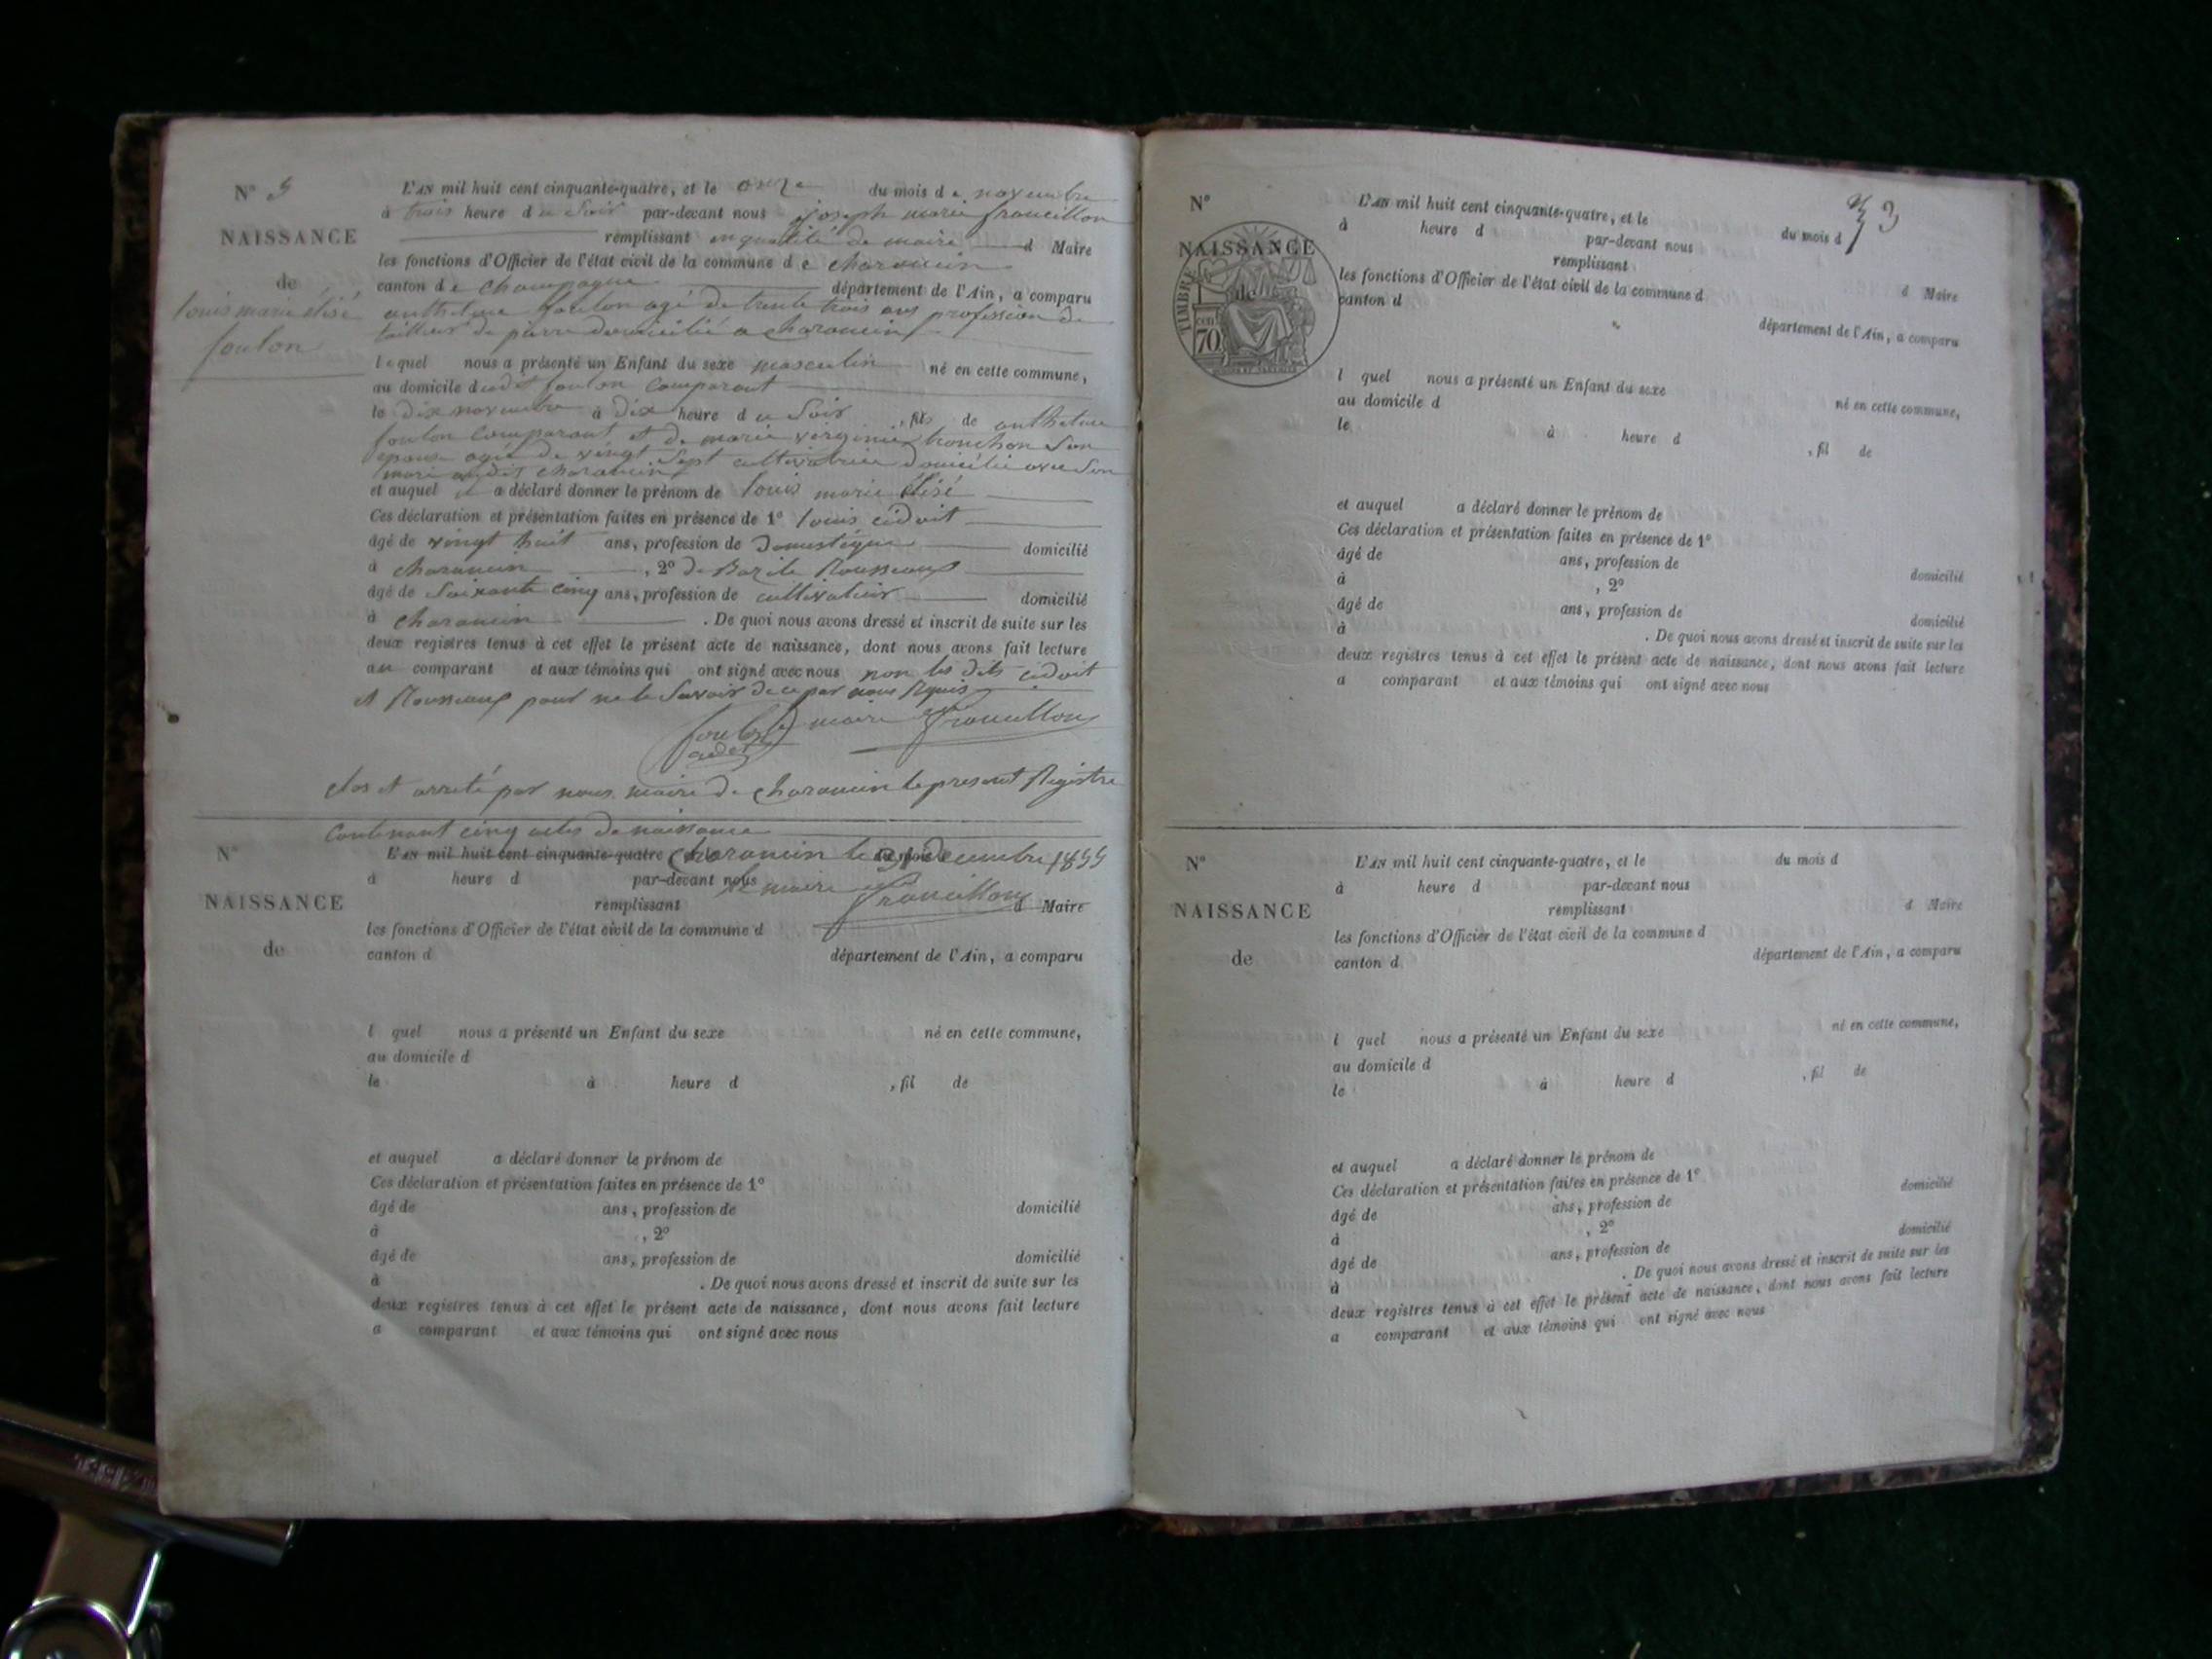 N° 5
NAISSANCE
de
louis marie élisé
foulon
L'AN mil huit cent cinquante-quatre, et le onze du mois de novembre
à trois heure du soir par-devant nous joseph marie francillon
remplissant en qualité de maire d Maire
les fonctions d'Officier de l'état civil de la commune de charancin
canton de champagne département de l'Ain, a comparu
anthelme foulon agé de trente trois ans profession de
tailleur de pierre domicilié a charancin
lequel nous a présenté un Enfant du sexe masculin né en cette commune,
au domicile dudit foulon comparant
le dix novembre à dix heure du soir, fils de anthelme
foulon comparant et de marie virginie tronchon son
epouse agée de vingt sept cultivatrice domiciliée avec son
mari audit charancin
et auquel il a déclaré donner le prénom de louis marie élisé
Ces déclaration et présentation faites en présence de 1° louis
âgé de vingt huit ans, profession de Domestique domicilié
à charancin, 2° de Bazile Rousseaux
âgé de soixante cinq ans, profession de cultivateur domicilié
à charancin. De quoi nous avons dressé et inscrit de suite sur les
deux registres tenus à cet effet le présent acte de naissance, dont nous avons fait lecture
au comparant et aux témoins qui ont signé avec nous non les dits
et Rousseaux pour ne le savoir de ce par nous Requis
foulon le maire Francillon
cadet
clos et arreté par nous maire de charancin le present Registre
Contenant cinq actes de naissance
charancin le 31 decembre 1854
le maire Francillon
N°
NAISSANCE
de
L'AN mil huit cent cinquante-quatre
à heure d par-devant nous
remplissant d Maire
les fonctions d'Officier de l'état civil de la commune d
canton d département de l'Ain, a comparu
l quel nous a présenté un Enfant du sexe né en cette commune,
au domicile d
le à heure d , fil de
et auquel a déclaré donner le prénom de
Ces déclaration et présentation faites en présence de 1°
âgé de ans, profession de domicilié
à , 2°
âgé de ans, profession de domicilié
à . De quoi nous avons dressé et inscrit de suite sur les
deux registres tenus à cet effet le présent acte de naissance, dont nous avons fait lecture
a comparant et aux témoins qui ont signé avec nous
3
N°
NAISSANCE
de
TIMBRE
70
L'AN mil huit cent cinquante-quatre, et le du mois d
à heure d par-devant nous
remplissant d Maire
les fonctions d'Officier de l'état civil de la commune d
canton d département de l'Ain, a comparu
l quel nous a présenté un Enfant du sexe né en cette commune,
au domicile d
le à heure d , fil de
et auquel a déclaré donner le prénom de
Ces déclaration et présentation faites en présence de 1°
âgé de ans, profession de domicilié
à , 2°
âgé de ans, profession de domicilié
à . De quoi nous avons dressé et inscrit de suite sur les
deux registres tenus à cet effet le présent acte de naissance, dont nous avons fait lecture
a comparant et aux témoins qui ont signé avec nous
N°
NAISSANCE
de
L'AN mil huit cent cinquante-quatre, et le du mois d
à heure d par-devant nous
remplissant d Maire
les fonctions d'Officier de l'état civil de la commune d
canton d département de l'Ain, a comparu
l quel nous a présenté un Enfant du sexe né en cette commune,
au domicile d
le à heure d , fil de
et auquel a déclaré donner le prénom de
Ces déclaration et présentation faites en présence de 1°
âgé de ans, profession de domicilié
à , 2°
âgé de ans, profession de domicilié
à . De quoi nous avons dressé et inscrit de suite sur les
deux registres tenus à cet effet le présent acte de naissance, dont nous avons fait lecture
a comparant et aux témoins qui ont signé avec nous